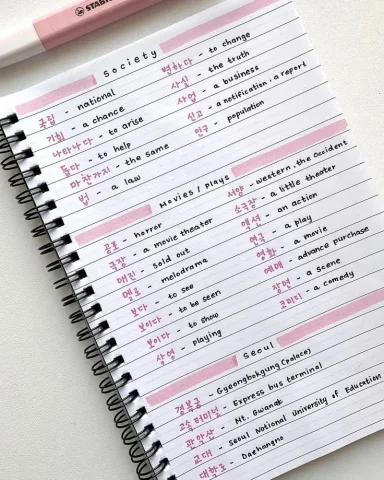 STABI
Society
국립 - national
기회 - a chance
나타나다 - to arise
돕다 - to help
마찬가지 - the same
법 - a law
변하다 - to change
사실 - the truth
사업 - a business
신고 - a notification, a report
인구 - population
Movies / Plays
공포 - horror
극장 - a movie theater
매진 - sold out
멜로 - melodrama
보다 - to see
보이다 - to be seen
보이다 - to show
상영 - playing
서양 - western, the Occident
소극장 - a little theater
액션 - an action
연극 - a play
영화 - a movie
예매 - advance purchase
장면 - a scene
코미디 - a comedy
Seoul
경복궁 - Gyeongbokgung (palace)
고속터미널 - Express bus terminal
관악산 - Mt. Gwanak
교대 - Seoul National University of Education
대학로 - Daehangno